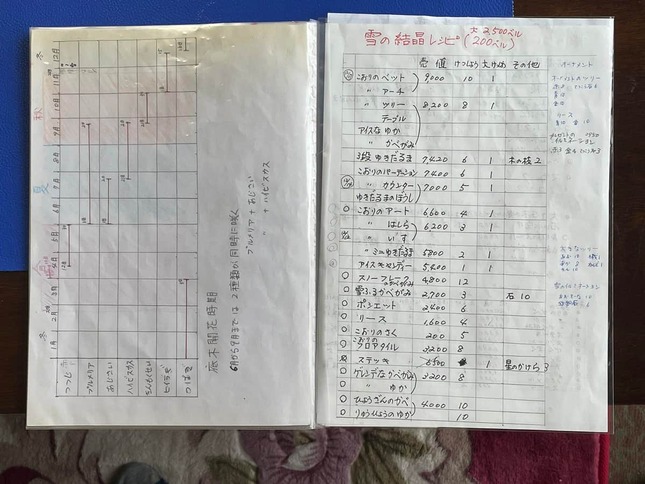 冬 春 夏 秋 冬
1月 2月 3月 4月 5月 6月 7月 8月 9月 10月 11月 12月
つつじ
プルメリア
あじさい
ハイビスカス
きんもくせい
ヒイラギ
つばき
低木開花時期
6月から9月までは2種類が同時に咲く
プルメリア+あじさい
〃 +ハイビスカス
雪の結晶レシピ(大2,500ベル
200ベル)
売値 けっしょう 大けっしょう その他
こおりのベット 9,000 10 1
〃 アーチ
〃 ツリー 8,200 8 1
〃 テーブル
アイスな ゆか
〃 かべがみ
3段 ゆきだるま 7,420 6 1 木の枝2
こおりのパーテーション 7,400 6 1
〃 カウンター 7,000 5 1
ゆきだるまのぼうし
○ こおりのアート 6,600 4 1
〃 はしら 6,200 3 1
〃 いす
〃 ミニゆきだるま 5800 2 1
アイスキャンデー 5,400 1 1
○ スノーフレークのかべがみ 4,800 12
○ 雪ふるかべがみ 2,700 3 石10
○ ポシェット 2400 6
○ リース 1,600 4
○ こおりのさく 200 5
○ こおりのフロアタイル 3,200 8
ステッキ 1 星のかけら3
○ ゲレンデなかべがみ 3,200 8
○ 〃 ゆか
○ ひょうざんのかべ 4,000 10
○ りゅうひょうのゆか 10
オーナメント
リース